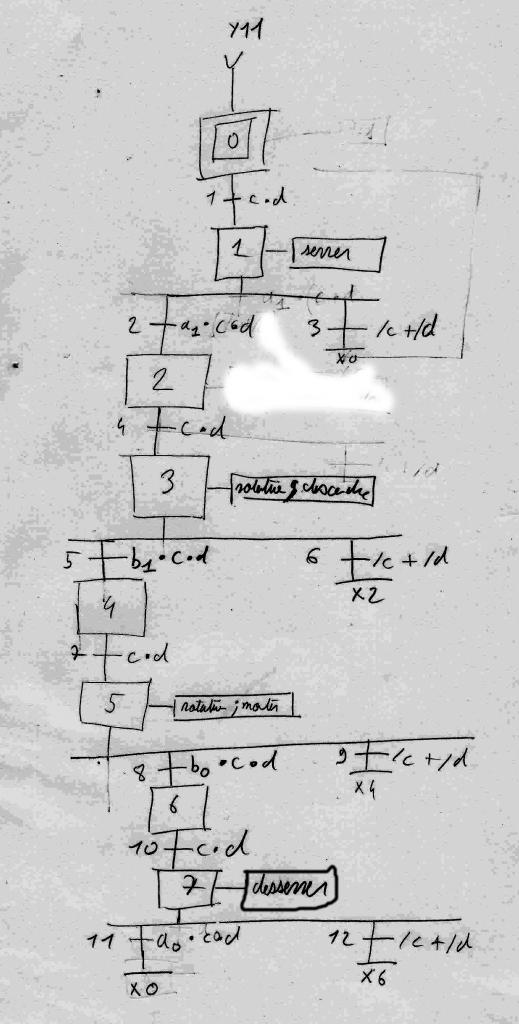 Y11
0
1 c.d
1 serrer
2 a1.c.d 3 /c+/d
X0
2
4 c.d
3 rotative ; descendre
5 b1.c.d 6 /c+/d
X2
4
7 c.d
5 rotative ; monter
8 b0.c.d 9 /c+/d
X4
6
10 c.d
7 desserrer
11 a0.c.d 12 /c+/d
X0 X6